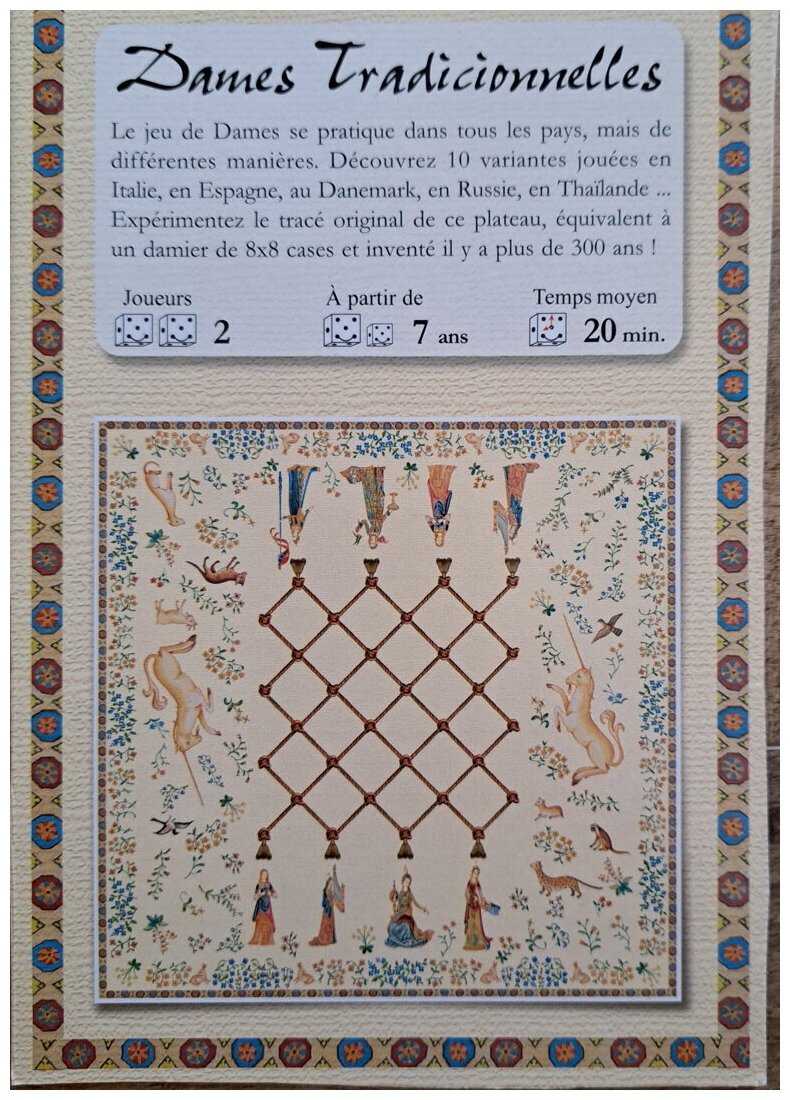 Dames Tradicionnelles
Le jeu de Dames se pratique dans tous les pays, mais de
différentes manières. Découvrez 10 variantes jouées en
Italie, en Espagne, au Danemark, en Russie, en Thaïlande ...
Expérimentez le tracé original de ce plateau, équivalent à
un damier de 8x8 cases et inventé il y a plus de 300 ans !
Joueurs
2
À partir de
7 ans
Temps moyen
20 min.